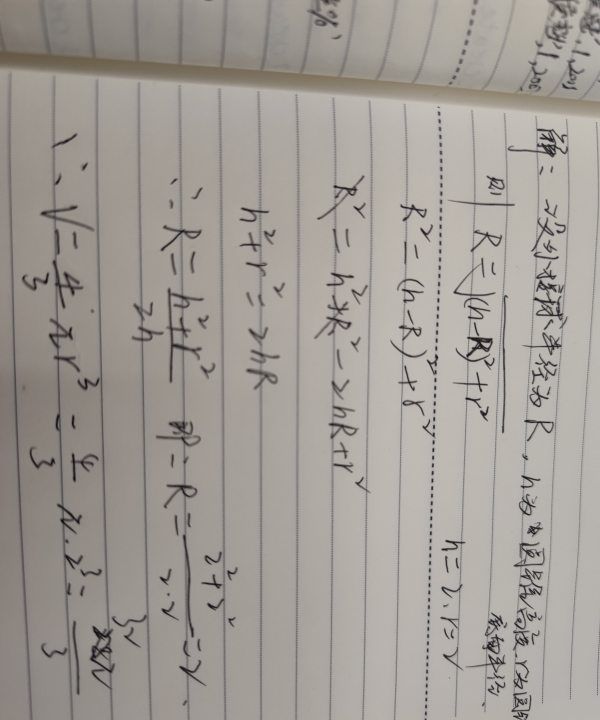 解：设外接球半径为R，h为圆锥高度r为圆锥
底面半径
则 R=√(h-R)²+r²
h=2.r=2
R²=(h-R)²+r²
R²=h²+R²-2hR+r²
h²+r²=2hR
∴R=h²+r²/2h 即=R=2²+2²/2·2=2.
∴V=4/3πr³=4/3π·2³=32π/3